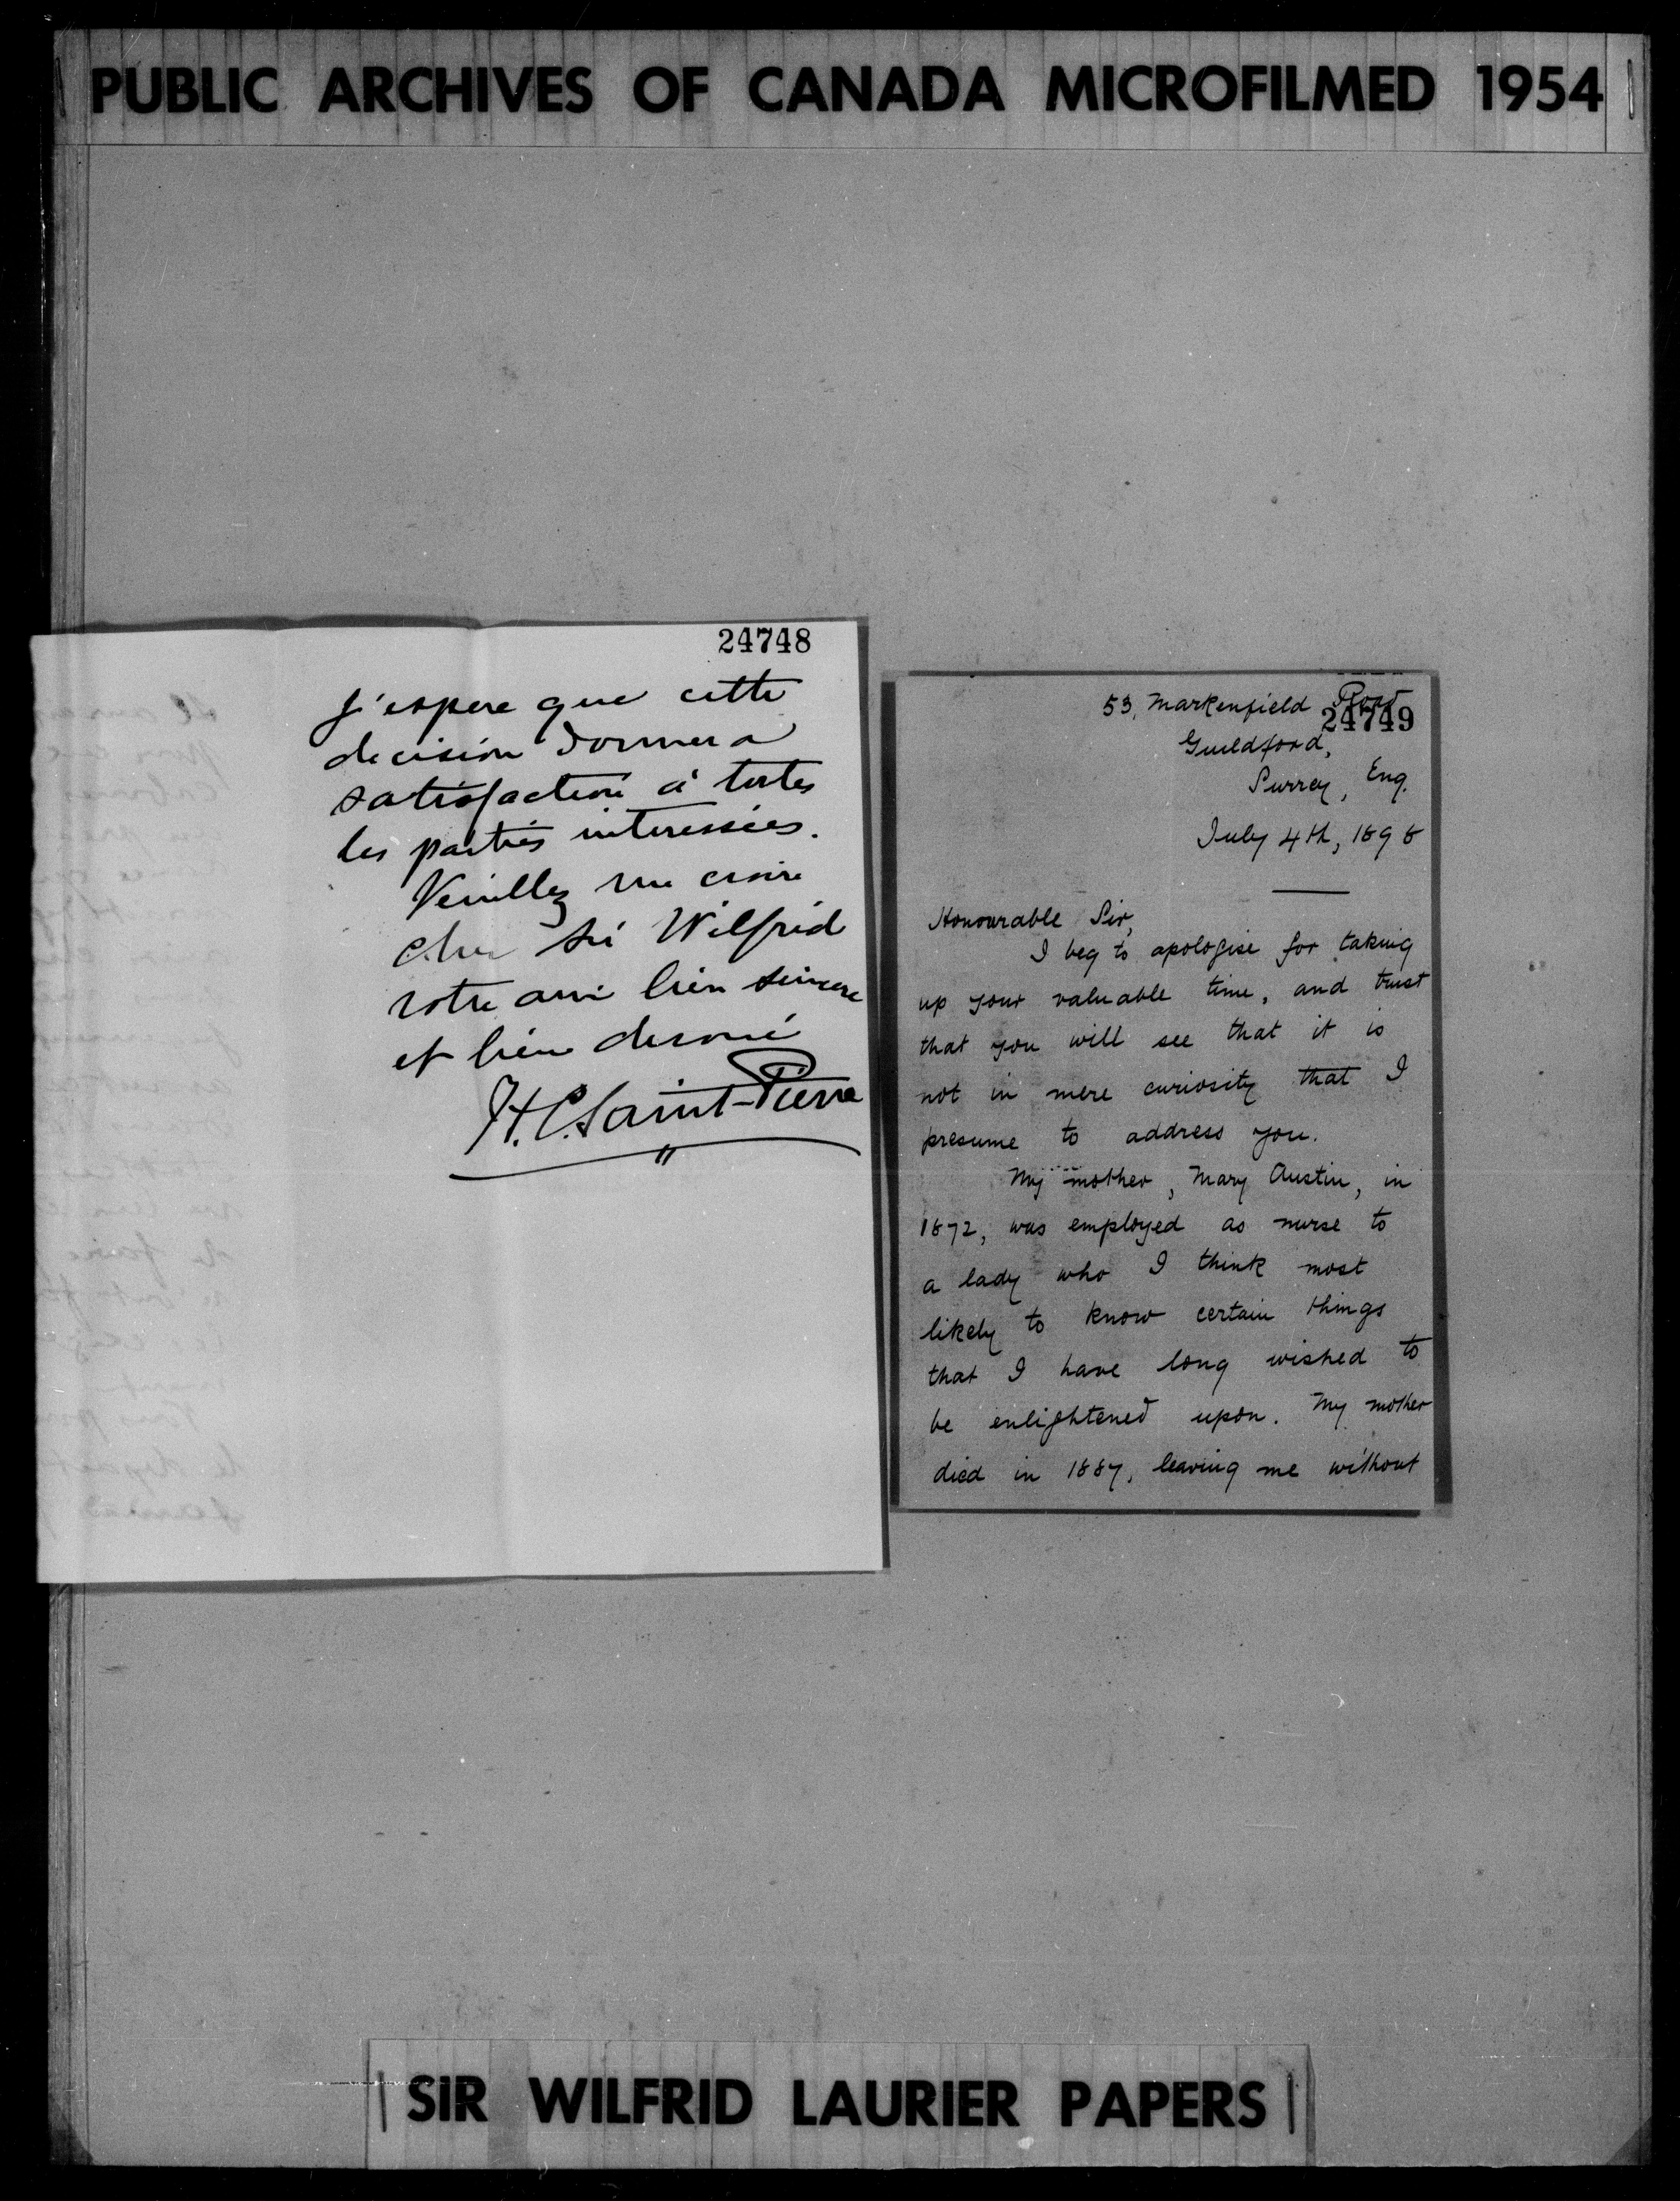 PUBLIC ARCHIVES OF CANADA MICROFILMED 1954
24748
J'espere que cette
decision donnera
satisfaction à toutes
les parties interessées.
Veuillez me croire
cher Sir Wilfrid
votre ami bien sincere
et bien devoué
H.C. Saint-Pierre
53, Markenfield Road
24749
Guildford,
Surrey, Eng.
July 4th, 1898
Honourable Sir,
I beg to apologise for taking
up your valuable time, and trust
that you will see that it is
not in mere curiosity that I
presume to address you.
My mother, Mary Austin, in
1872, was employed as nurse to
a lady who I think most
likely to know certain things
that I have long wished to
be enlightened upon. My mother
died in 1887, leaving me without
SIR WILFRID LAURIER PAPERS